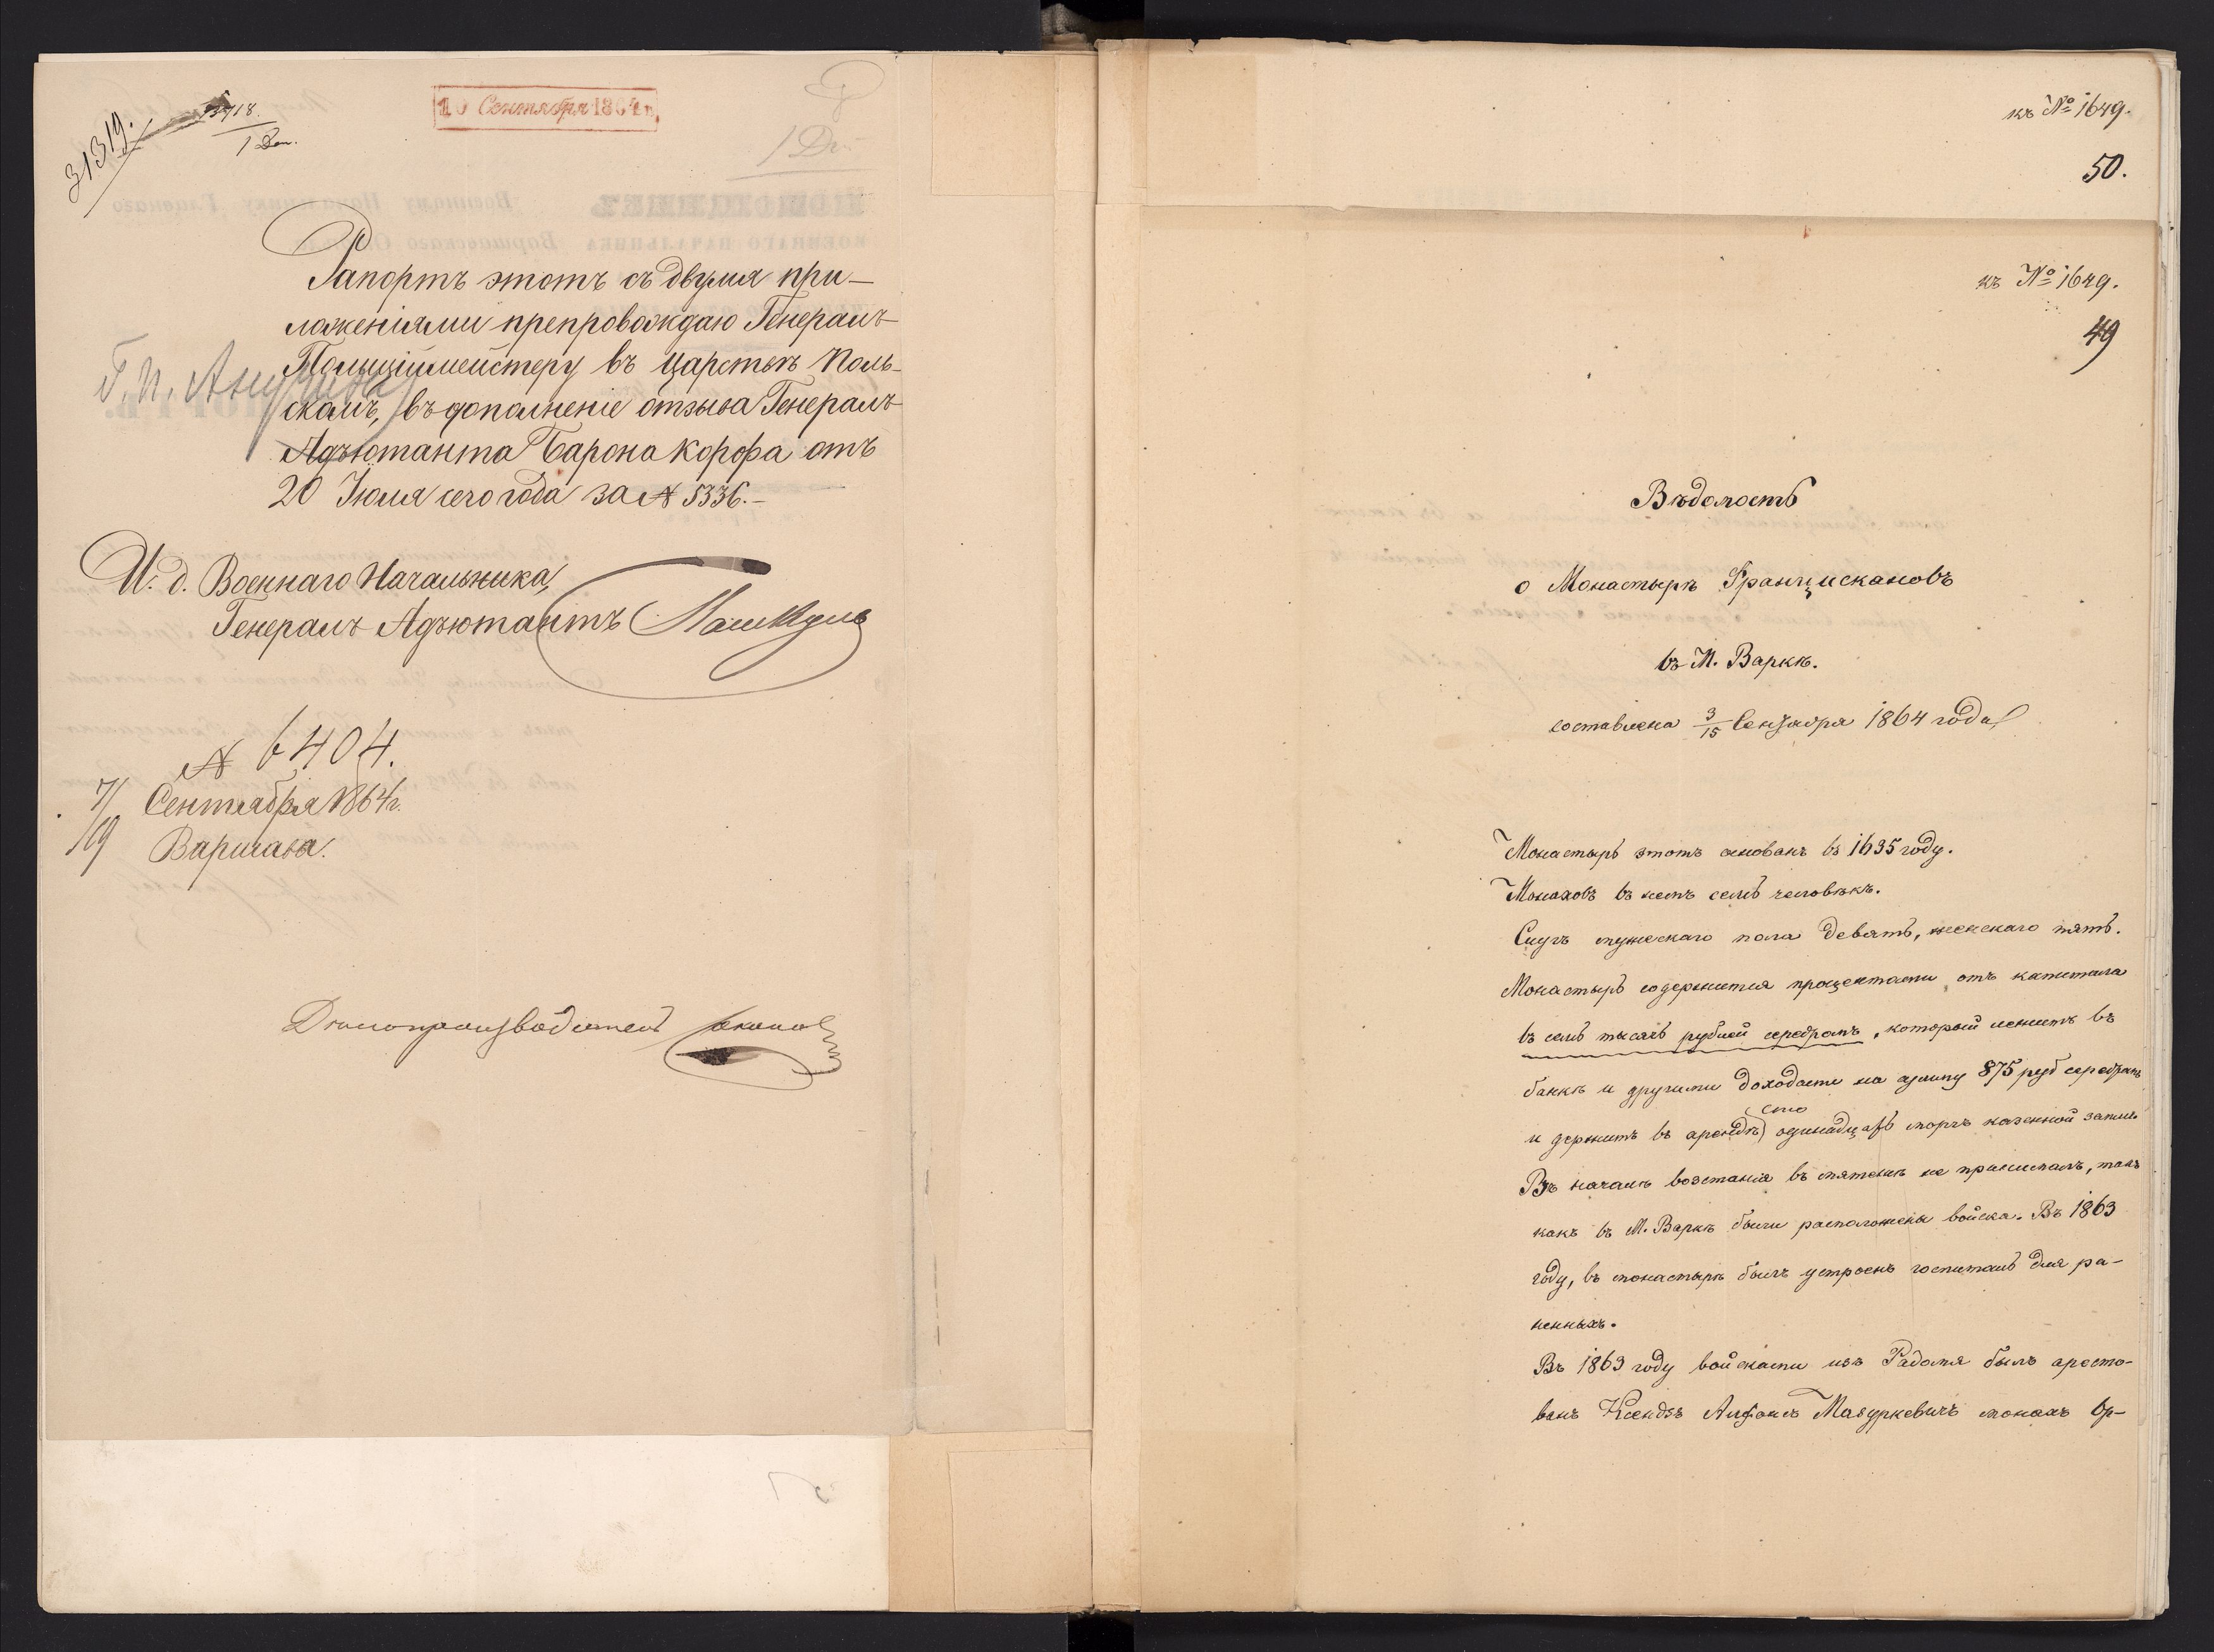 31319.
13718.
1 Ден.
10 Сентября 1864 г.
Рапортъ этотъ съ двумя при-
ложеніями препровождаю Генералъ-
Полиціймейстеру въ Царствѣ Поль-
скомъ, въ дополненіе отзыва Генералъ-
Адъютанта Барона Корфа отъ
20 Іюля сего года за № 5336.-
И. д. Военнаго Начальника,
Генералъ Адъютантъ
№ 6404.
7/19 Сентября 1864 г.
Варшава.
Дѣлопроизводитель
къ № 1649.
50.
къ № 1649.
49
Вѣдомость
о Монастырѣ Францискановъ
въ М. Варкѣ.
составлена 3/15 Сентября 1864 года
Монастырь этотъ основанъ въ 1635 году.
Монаховъ въ немъ семь человѣкъ.
Слугъ мужескаго пола девять, женскаго пять.
Монастырь содержится процентами отъ капитала
въ семь тысячь рублей серебромъ, который лежитъ въ
банкѣ и другими доходами на сумму 875 руб серебромъ
и держитъ въ арендѣ сто одинадцать моргъ казенной земли.
Въ началѣ возстанія въ мятежѣ не принималъ, такъ
какъ въ М. Варкѣ были расположены войска. Въ 1863
году, въ монастырѣ былъ устроенъ госпиталь для ра-
ненныхъ.
Въ 1863 году войсками изъ Радома былъ аресто-
ванъ Ксендзъ Алфонсъ Мазуркевичъ монахъ Ор-